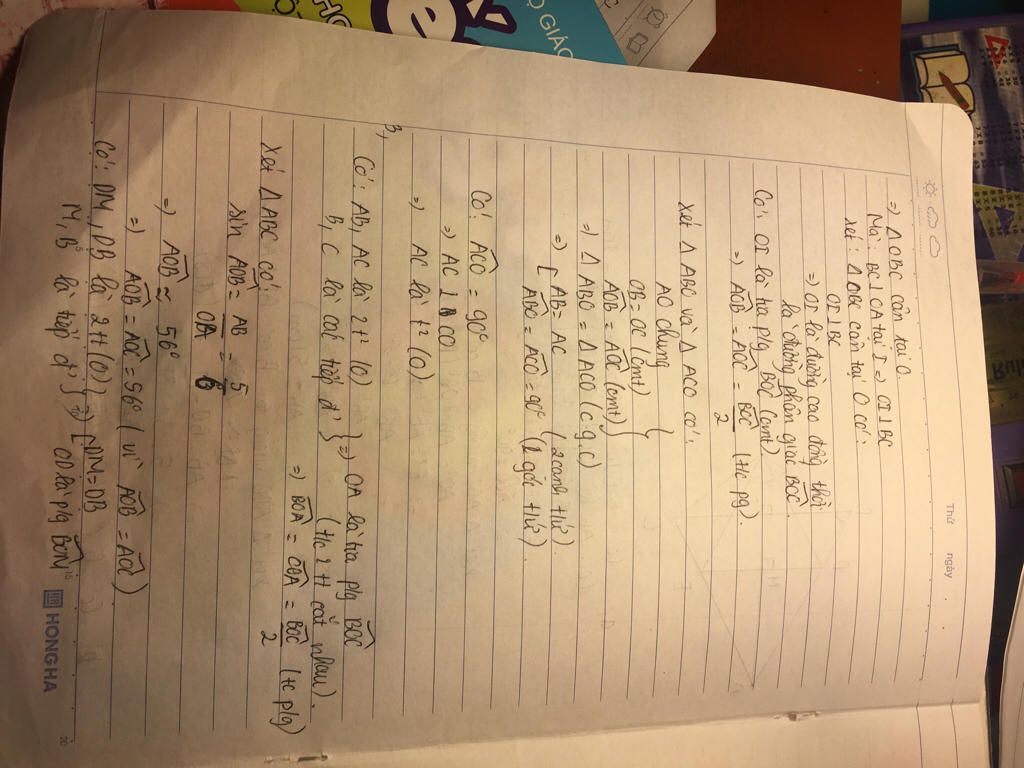 Thứ ngày
=) Δ OBC cân tại O.
Mà: BC ⊥ OA tại I =) OI ⊥ BC
Xét: Δ OBC cân tại O có:
OI ⊥ BC
=) OI là đường cao đồng thời
là đường phân giác BOC.
Có: OI là tia p/g BOC (cmt)
=) AOB = AOC = BOC/2 (t/c p/g).
Xét Δ ABO và Δ ACO có:
AO chung
OB = OC (cmt)
AOB = AOC (cmt) }
=) Δ ABO = Δ ACO (c.g.c)
=) [ AB = AC (2 cạnh t/ứ).
ABO = ACO = 90° (2 góc t/ứ).
Có: ACO = 90°
=) AC ⊥ CO
=) AC là t² (O)
B,
Có: AB, AC là 2 t² (O)
B, C là các tiếp đ' } =) OA là tia p/g BOC
(t/c 2 tt cắt nhau).
=) BOA = COA = BOC/2 (t/c p/g)
Xét Δ ABC có:
sin AOB = AB/OA = 5/6
=) AOB ≈ 56°
=) AOB = AOC = 56° (vì AOB = AOC)
Có: DM, DB là 2 tt (O)
M, B là tiếp đ' } =) [ DM = DB
OD là p/g BOM
HONGHA
ĐỘ GIÁC
HO